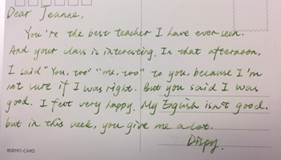 Dear Jeanne,
You're the best teacher I have ever seen.
And your class is interesting. In that afternoon,
I said "You, too" "me, too" to you, because I'm
not sure if I was right. But you said I was
good. I felt very happy. My English isn't good.
but in this week, you give me a lot.